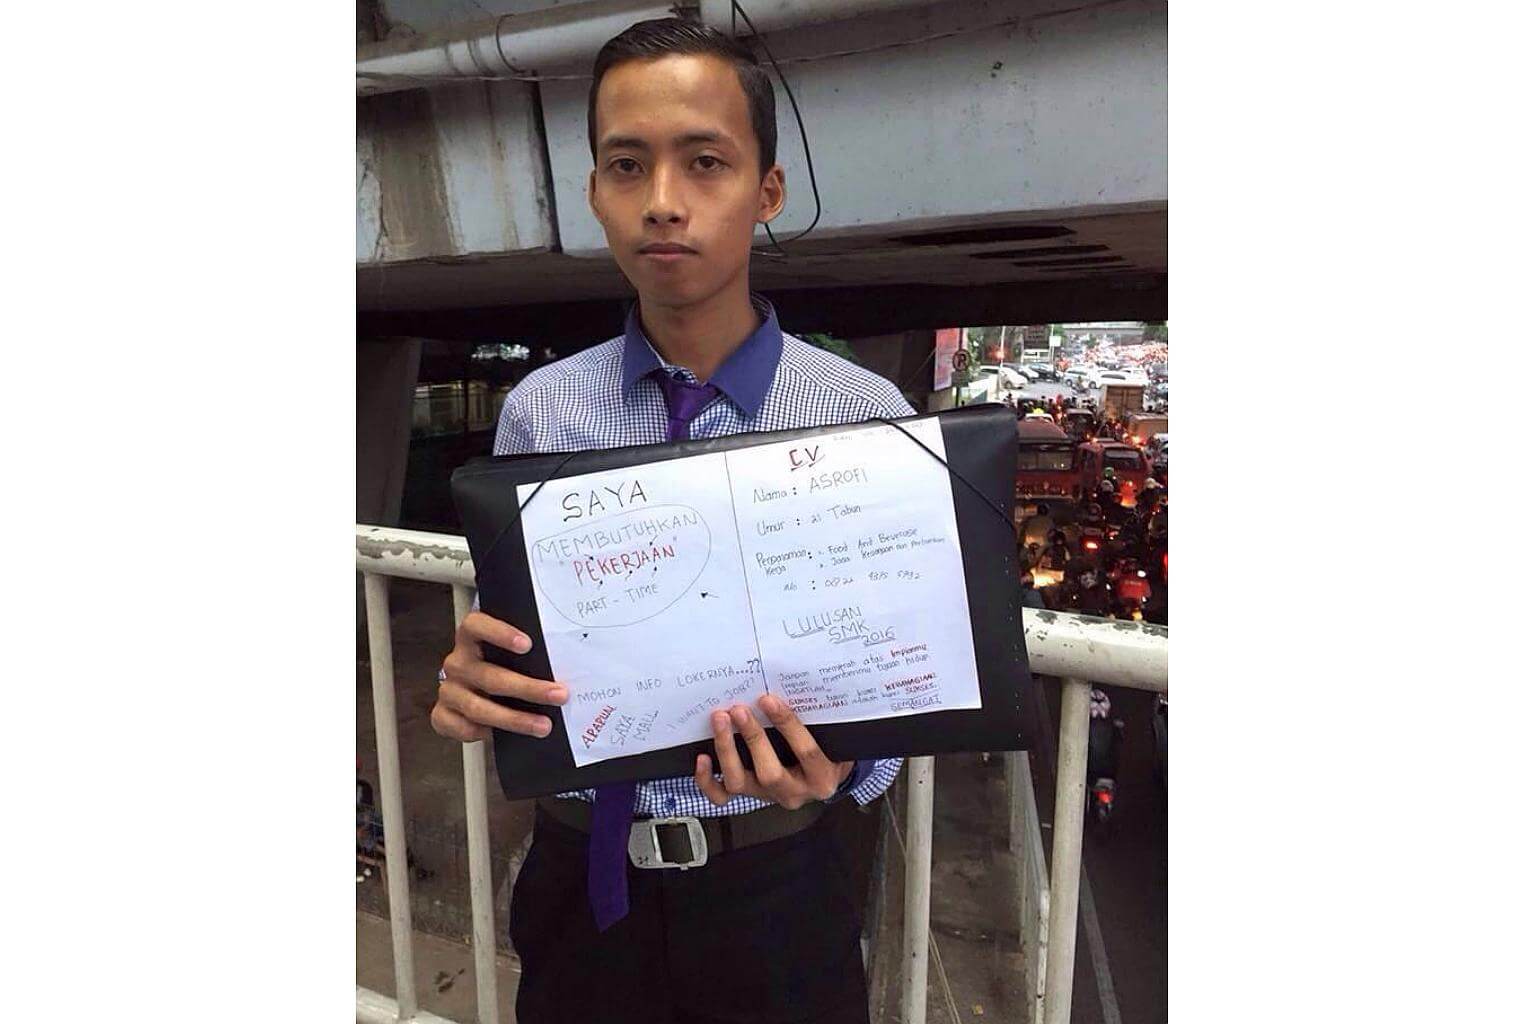 SAYA
MEMBUTUHKAN
"PEKERJAAN"
PART - TIME
MOHON INFO LOKERNYA...??
APAPUN
SAYA
MAU
I WANT TO JOB??
CV
Nama : ASROFI
Umur : 21 Tahun
Pengalaman : Food And Beverage
Kerja Jasa Keuangan dan Perbankan
LULUSAN
SMK
2016
Jangan menyerah atas Impianmu
Impian memberimu tujuan hidup.
INGATLAH
SUKSES bukan kunci KEBAHAGIAAN
KEBAHAGIAAN adalah kunci SUKSES.
SEMANGAT
P